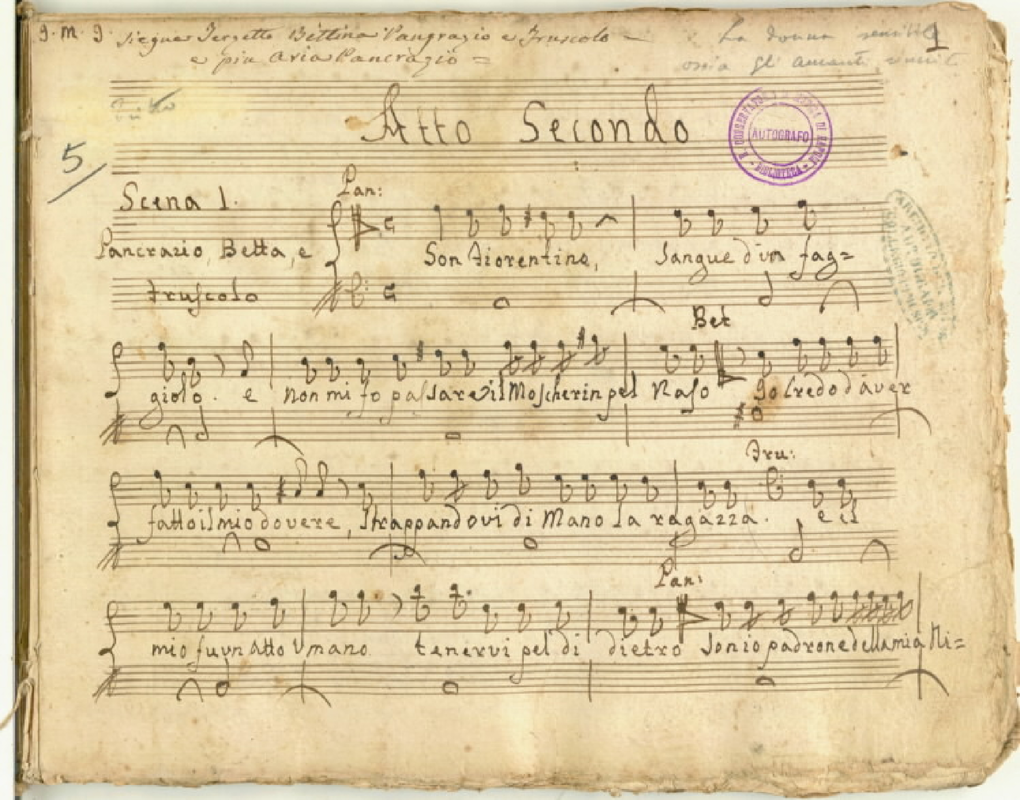 J. M. J. Siegue Terzetto Bettina Pangrazio e Fruscolo
e piu Aria Pancrazio =
La donna sensibile
osia gl'amanti
1
Atto Secondo
AUTOGRAFO
5
Pan:
Scena 1.
Pancrazio, Betta, e
Fruscolo
Son Fiorentino, Sangue d'un fag=
Bet
giolo. e non mi fo passare il Moscherin pel Naso Io Credo d'aver
Fru:
fatto il mio dovere, strappandovi di Mano la ragazza. e il
Pan:
mio fu un Atto Umano tenervi pel di dietro Son io padrone della mia Ni=